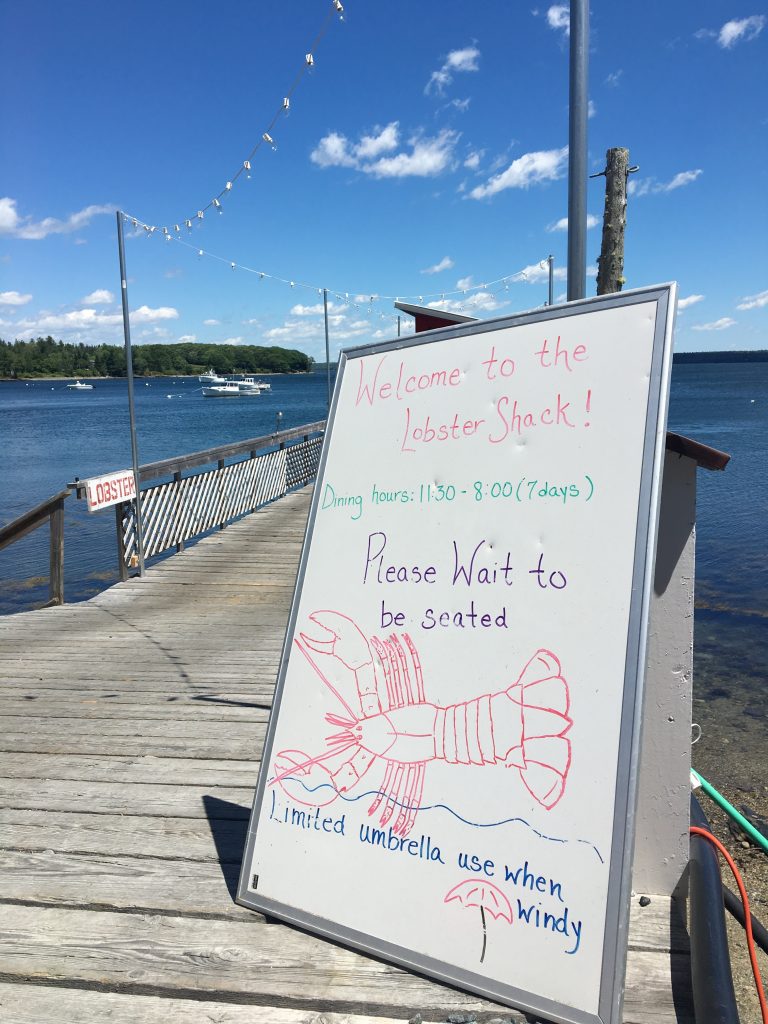 Welcome to the
Lobster Shack!
Dining hours: 11:30 - 8:00 (7 days)
Please Wait to
be seated
Limited umbrella use when
windy
LOBSTER